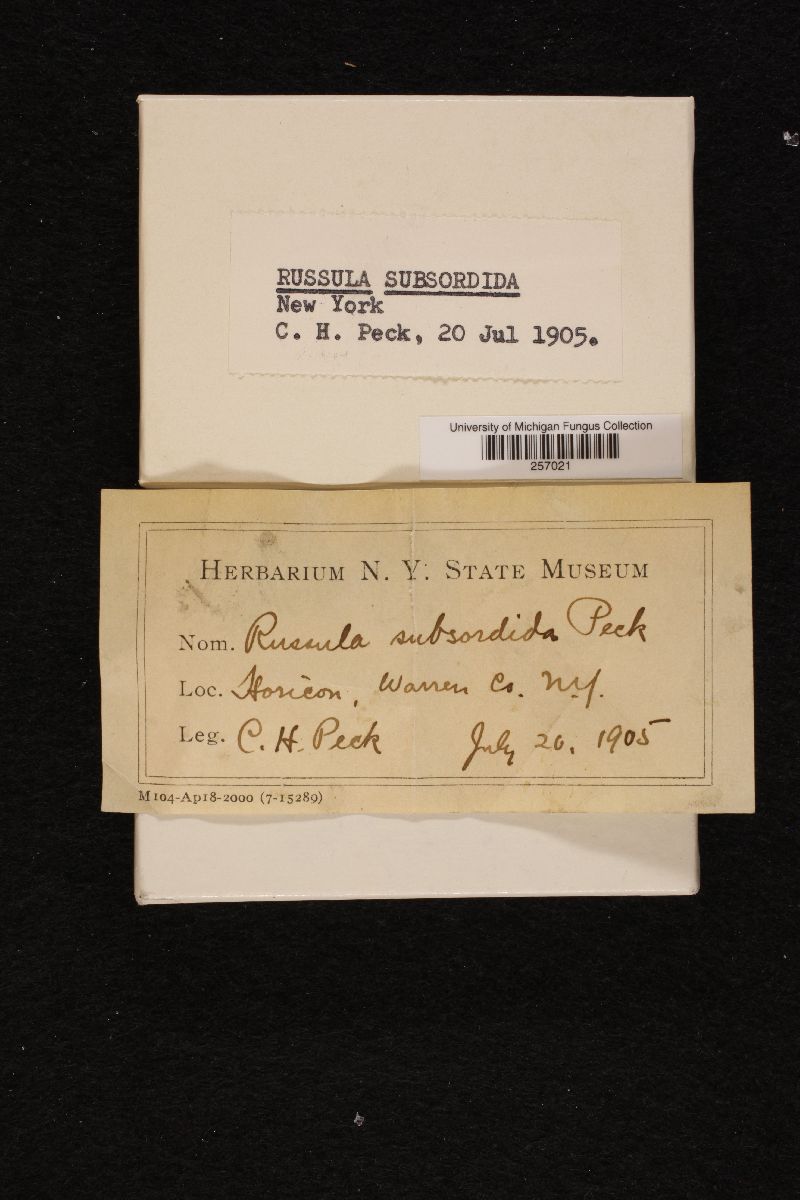 RUSSULA SUBSORDIDA
New York
C. H. Peck, 20 Jul 1905.
University of Michigan Fungus Collection
257021
HERBARIUM N. Y. STATE MUSEUM
Nom. Russula subsordida Peck
Loc. Horicon, Warren Co. N.Y.
Leg. C. H. Peck July 20, 1905
M104-Ap18-2000 (7-15289)